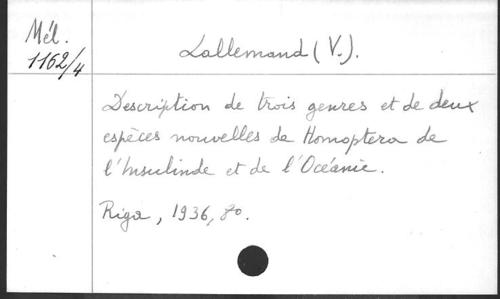 Mél.
1162/4
Lallemand (V.).
Description de trois genres et de deux
espèces nouvelles de Homoptera de
l'Insulinde et de l'Océanie.
Riga, 1936, 8o.